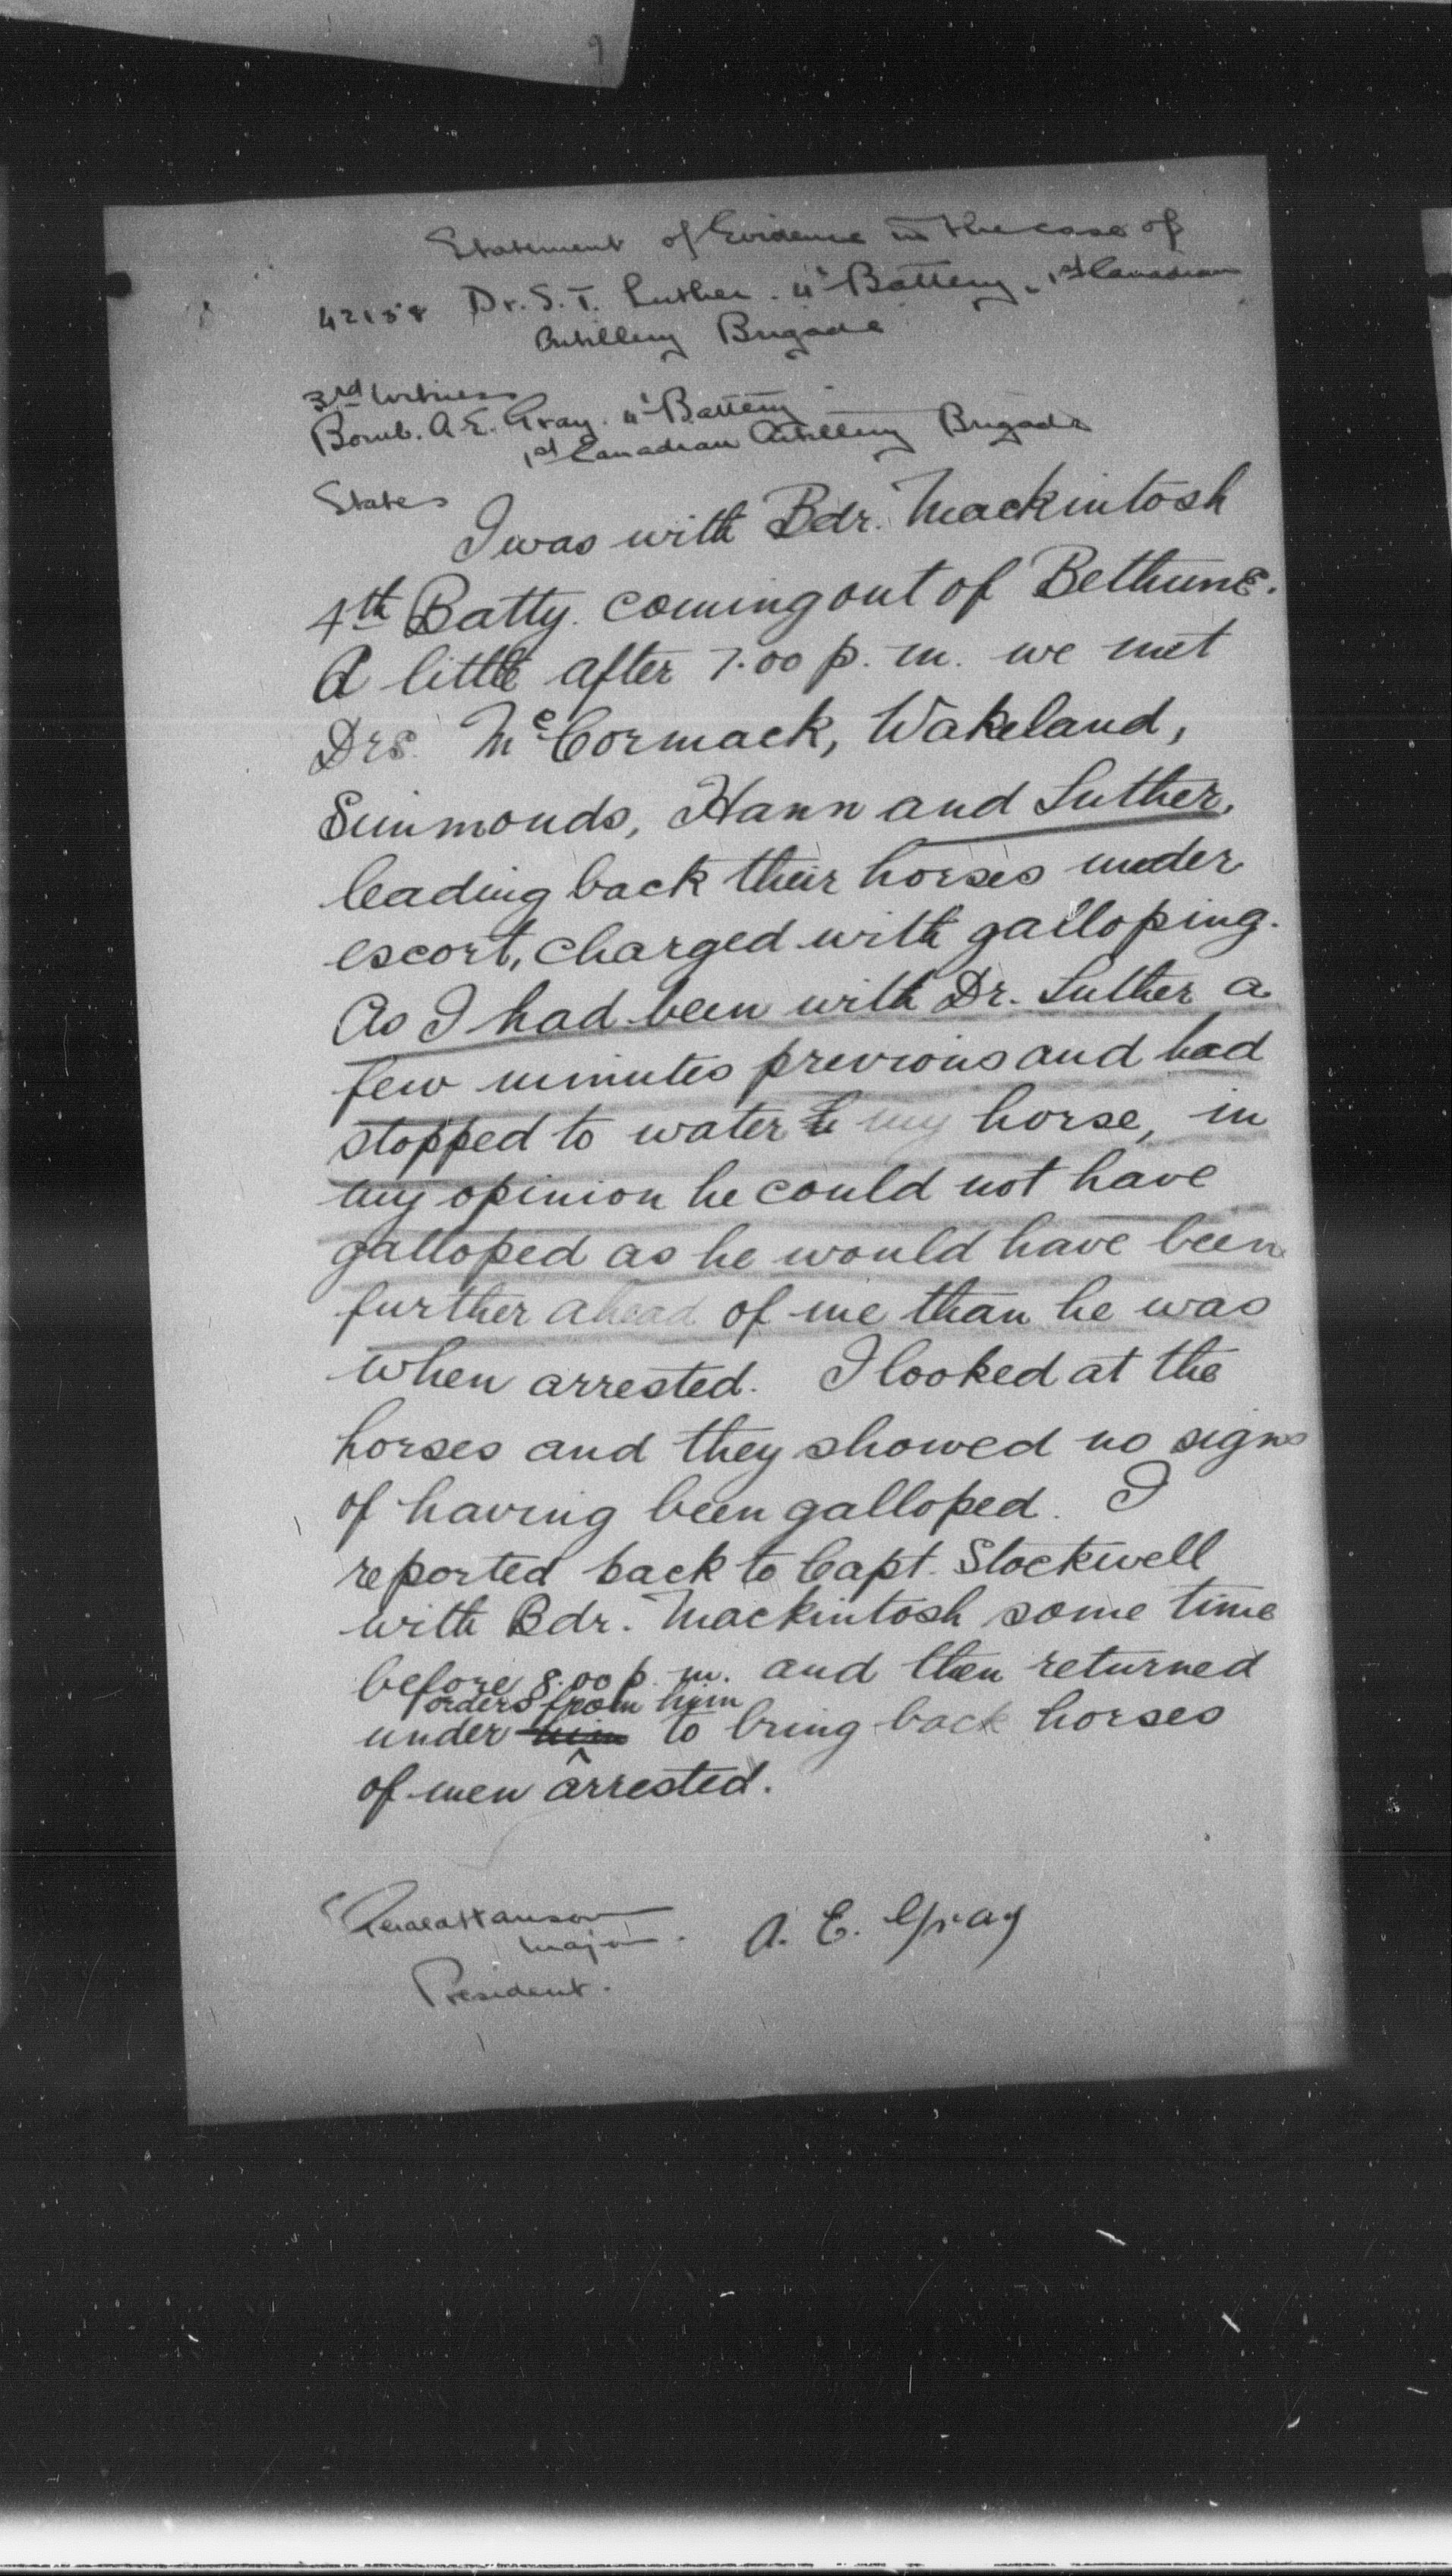 9
Statement of Evidence in the case of
42158 Dr. S. T. Luther. 4th Battery, 1st Canadian
Artillery Brigade
3rd Witness
Bomb. A. E. Gray. 4th Battery
1st Canadian Artillery Brigade
States
I was with Bdr. Mackintosh
4th Batty. coming out of Bethune.
A little after 7.00 p. m. we met
Drs. McCormack, Wakeland,
Simmonds, Hann and Luther,
leading back their horses under
escort, charged with galloping.
As I had been with Dr. Luther a
few minutes previous and had
stopped to water my horse, in
my opinion he could not have
galloped as he would have been
further ahead of me than he was
when arrested. I looked at the
horses and they showed no signs
of having been galloped. I
reported back to Capt. Stockwell
with Bdr. Mackintosh some time
before 8.00 p. m. and then returned
orders from him
under him to bring back horses
of men arrested.
Hanson
Major.
A. E. Gray
President.